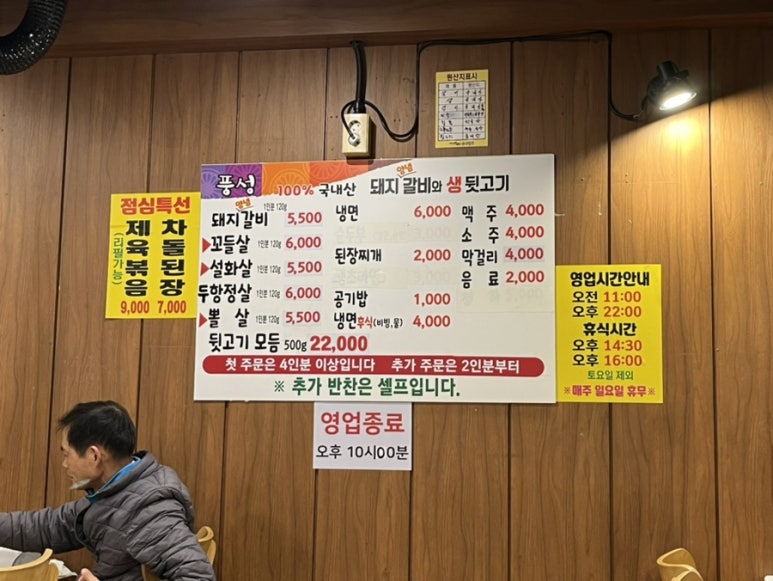 원산지표시
풍성 100% 국내산 양념 돼지갈비와 생 뒷고기
양념 돼지갈비 1인분 120g 5,500
▶꼬들살 1인분 120g 6,000
▶설화살 1인분 120g 5,500
두항정살 1인분 120g 6,000
▶뽈 살 1인분 120g 5,500
뒷고기 모듬 500g 22,000
냉면 6,000
된장찌개 2,000
공기밥 1,000
냉면후식(비빔,물) 4,000
맥 주 4,000
소 주 4,000
막걸리 4,000
음 료 2,000
첫 주문은 4인분 이상입니다 추가 주문은 2인분부터
※ 추가 반찬은 셀프입니다.
점심특선
제육볶음
(리필가능)
9,000
차돌된장
7,000
영업시간안내
오전 11:00
오후 22:00
휴식시간
오후 14:30
오후 16:00
토요일 제외
※매주 일요일 휴무※
영업종료
오후 10시00분